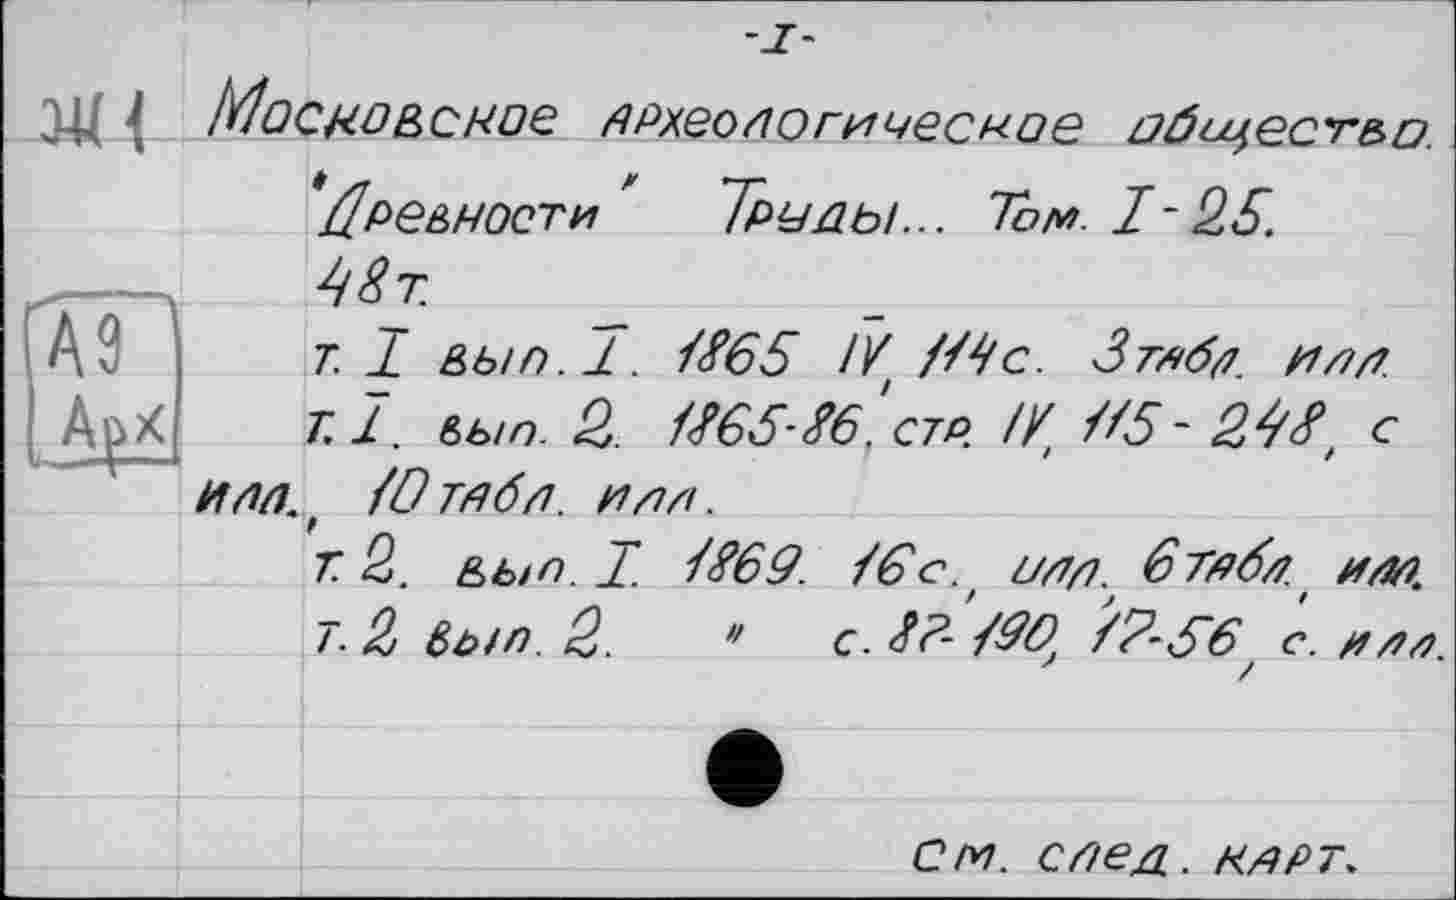 -I-
Ж1 Московское археологическое общество.
"Древности" Труды... Том. I-25.
48т.
А9
т. I вып. I. 1865 IV, 114с. 3табл. илл.
Арх
т. I. вып. 2. 1865-86, стр. IV, 115-248, с
илл., 10 табл. илл.
т. 2. вып. I. 1869. 16с., илл., 6табл., илл.
т. 2 вып. 2. " с. 87-190, 17-56, с. илл.
см. след. карт.